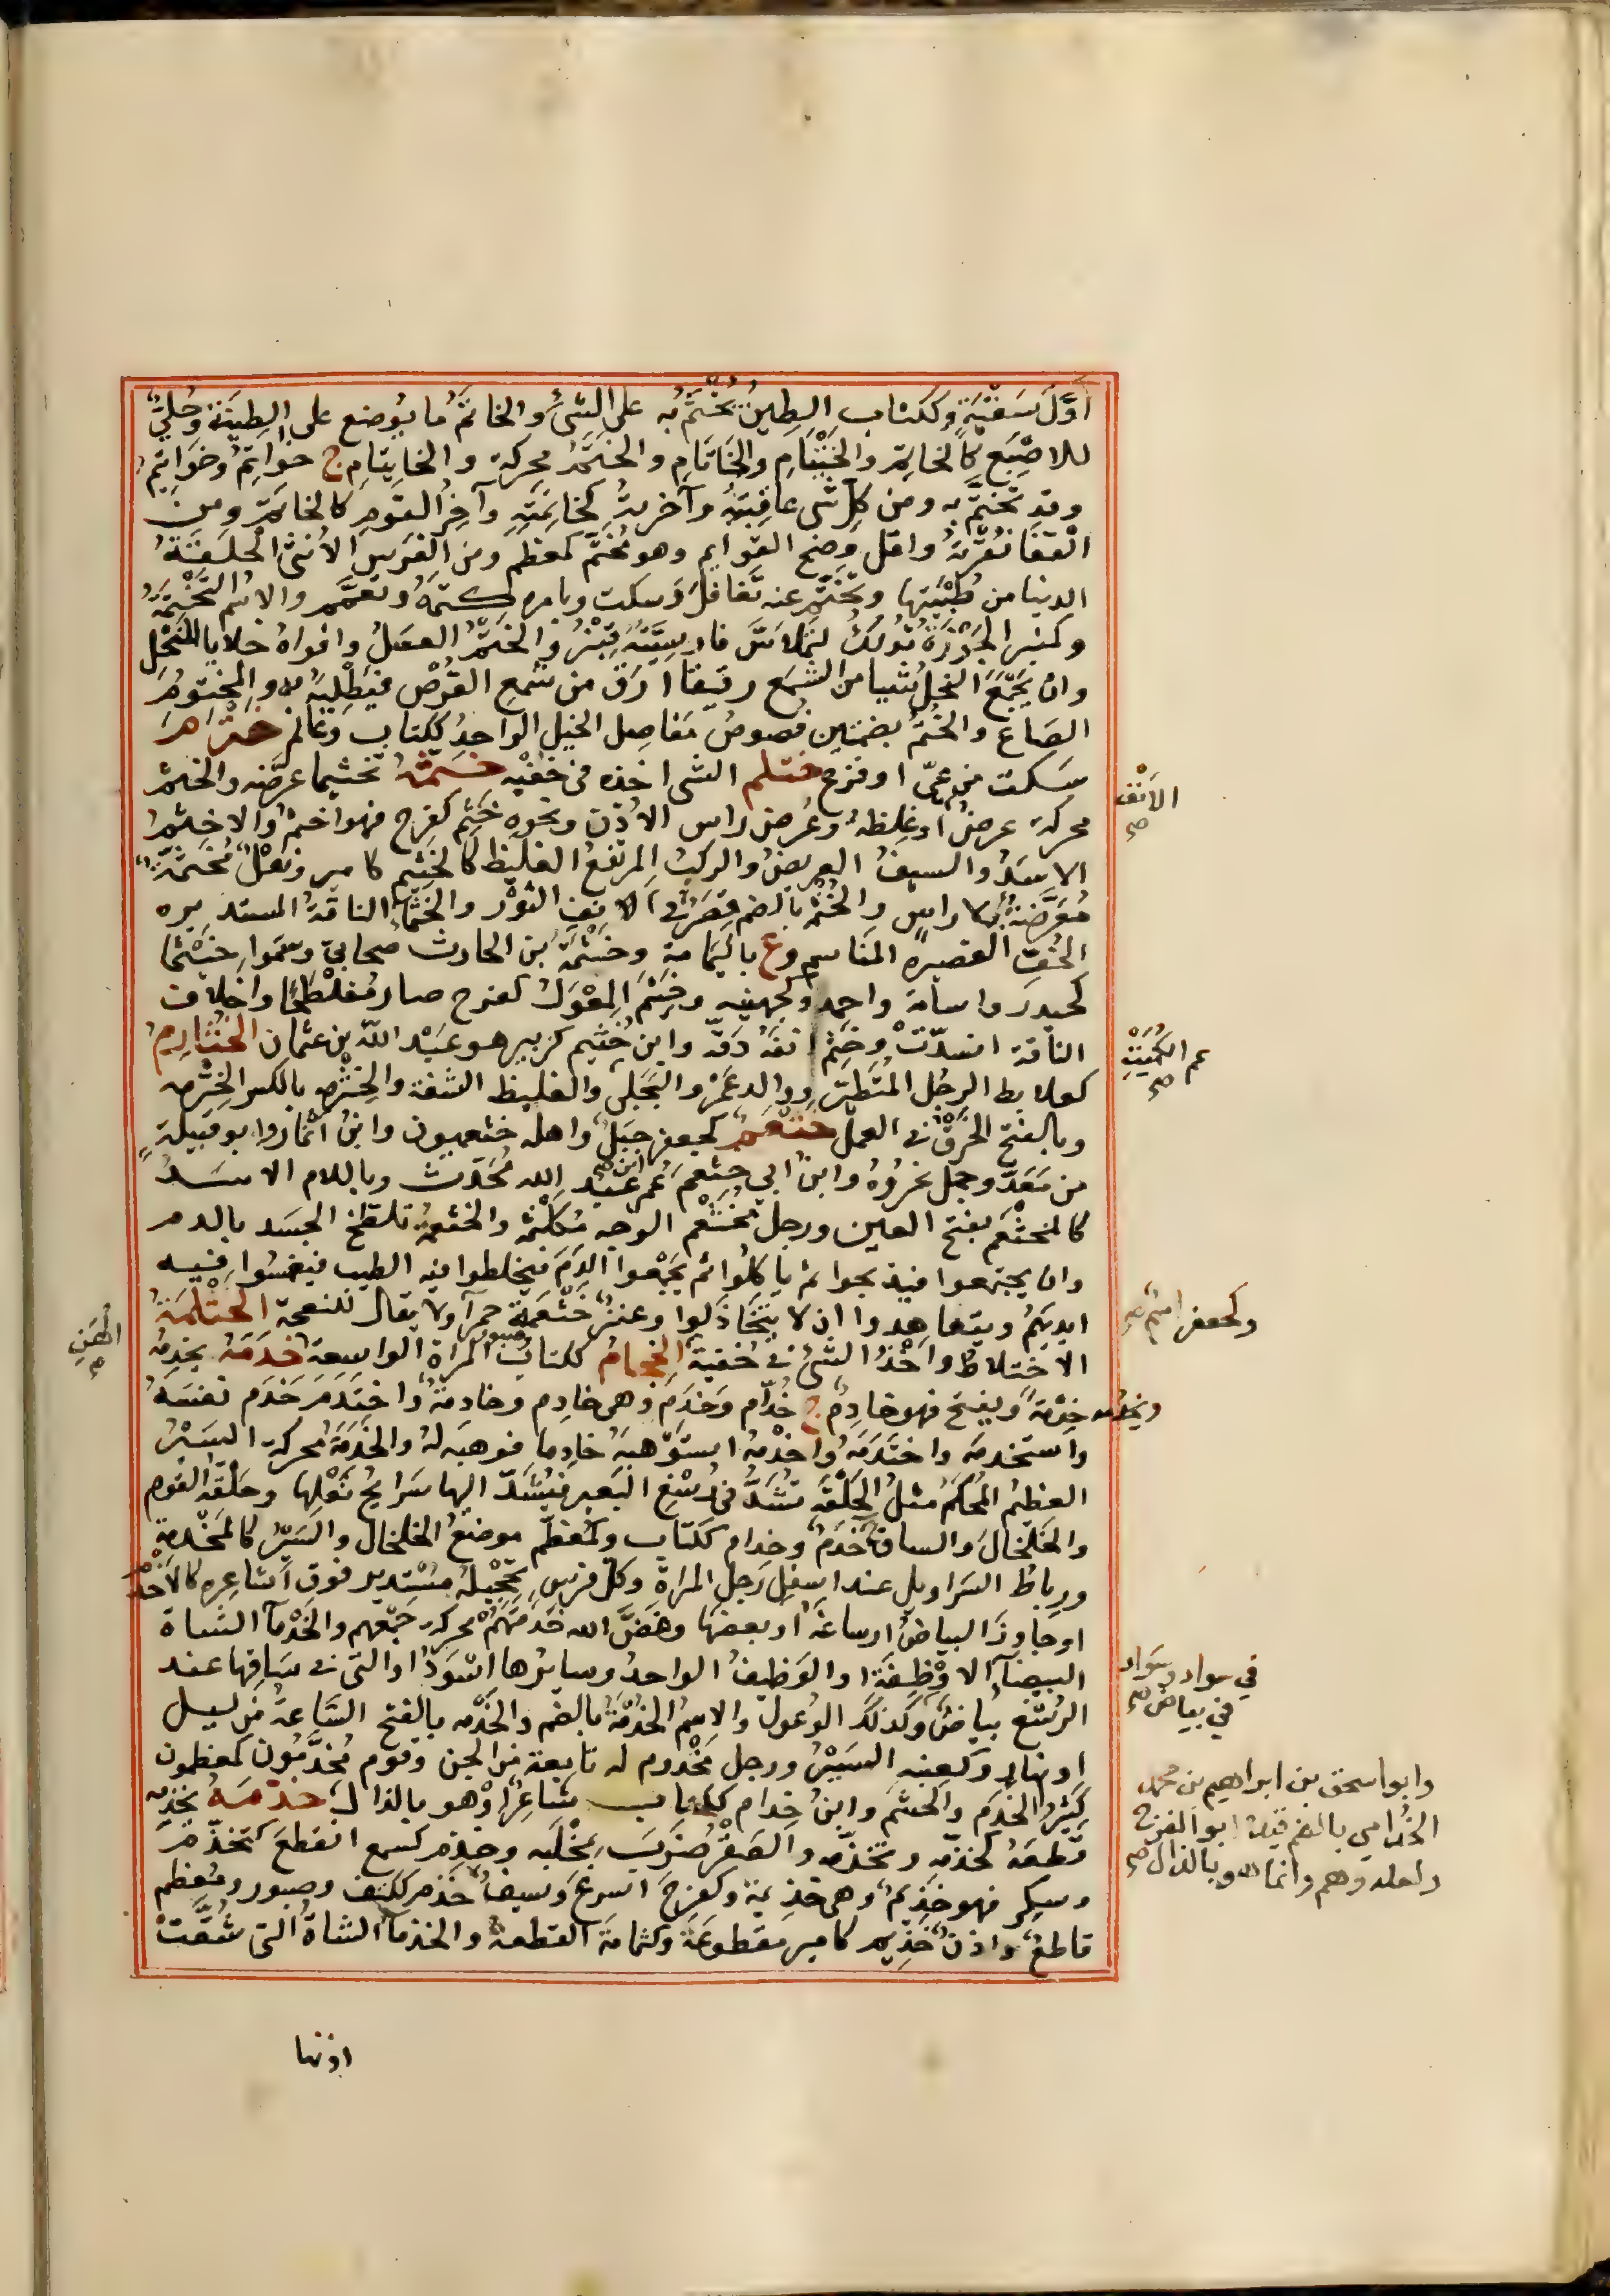 أوَّلَ سَقْيَةٍ وككتاب الطِينُ يُخْتَمُ به على الشئ والخاتمُ ما يُوضع على الطِينَة وحُلِيٌّ
للاصْبَع كالخاتِم والخَيْتامِ والخَاتَامِ والخَتَمُ محركة والخاتِيَامِ ج خواتمُ وخواتيمُ
وقد تختّم به ومن كل شئ عاقبتُه وآخرتهُ كخاتِمَتِه وآخِرُ القوم كالخاتم ومن
القفا نُقْرَتُهُ واقلّ وضح القوايم وهو مُخَتَّم كمعظم ومن الفرس الأنثى الحلقةُ
الدنيا من طُبْيَيها وتختّم عنه تغافلَ وسكت وبامره كتمهُ وتعمّم والاسم التَّخْتِمَةُ
وكمنبر الجَوْزَةُ تُدلَكُ لتملاسَّ فارسيته تِيْرُ والختم العسلُ وافواهُ خلايا النحل
وان يَجْمَعَ النحلُ شيا من الشمع رقيقا ارَقَّ من شمع القُرْص فيَطْلِيَه به والمختومُ
الصاع والخُتُمُ بضمتين فصوصُ مَفاصل الخيل الواحد ككتاب وعالم خترم
سكت من عِيٍّ او فزع ختلم الشى اخذه فى خفيه خثمهُ تخثيما عرّضه والخثم
محركة عرض او غلظه وعُرض راس الاذن ونحوه خثم كفرح فهو اخثم والاخثم
الاسدُ والسيفُ العريضُ والركبُ المرتفعُ الغليظ كالخثيم كامير ونعلٌ مُخثّمةٌ
مُعرّضةُ بلا راسٍ والخُثْمُ بالضم قِصَرٌ فى الانف الثور والخَثماءُ الناقةُ المستديره
الخف القصيره المناسم وع باليمامة وخَثْمَةُ بن الحارث صحابيّ وسموا خَيْثما
كحيدر واسامة واحمد وكجهينه وخثم المِعْوَل كفرح صار مفلطحا واخلاف
الناقة انسدّت وخثم انفه دَقّه وابن خُثيم كزبير هو عبد الله بن عثمان الخثارم
كعلابط الرجل المتطير ووالد عمرو البجلى والغليظ الشفة والخثرمه بالكسر الخثرمه
وبالفتح الخرق فى العمل خثعم كجعفر جبل واهله خثعميون وابن انمار ابو قبيلة
من مَعَدّ وجمل نحروه وابن ابي خثعم عمر بن عبد الله محدث وباللام الاسد
كالمخثعم بفتح العين ورجل مخثعم الوجه مكلثمه والخثعمة تلطخ الجسد بالدم
وان يجتمعوا فيذبحوا ثم ياكلوا ثم يجمعوا الدم فيخلطوا فيه الطيب فيغمسوا فيه
ايديهم ويتعاهدوا ان لا يتخاذلوا وعنز خثعمة حمرآ ولا يقال للنعجة الخثلمة
الاختلاط واخذ الشئ فى خفية الخجام ككتاب وصبور المرأة الواسعة خدمه يخدمه
ويخدمه خدمة ويفتح فهو خادم ج خدّام وخدم وهى خادم وخادمة واختدم خدم نفسه
واستخدمه واختدمه واخدمه استوهبه خادما فوهبه له والخدمة محركة السير
العظيم المحكم مثل الحلقة تشد فى رسغ البعير فيشد اليها سرايح نعلها وحلقة القوم
والخلخال والساق ج خدم وخدام ككتاب وكمعظم موضع الخلخال والسير كالمخدمة
ورباط السراويل عند اسفل رجل المراة وكل فرس تحجيله مستدير فوق اشاعره كالاخدم
او جاوز البياض ارساغه او بعضها وفض الله خدمتهم محركه جمعهم والخدمآ الشاة
البيضآ الاوظفة او الوظيف الواحد وسايرها اسود او التى فى ساقها عند
الرسغ بياض وكذلك الوعول والاسم الخدمة بالضم والخدمه بالفتح الساعة من ليل
او نهار وكعنبه السير ورجل مخدوم له تابعة من الجن وقوم مخدّمون كمعظمون
كثير الخدم والحشم وابن خدام ككتاب شاعر او هو بالذال خذمه يخذمه
قطعه كخذّمه وتخذّمه والصقر ضرب بمخلبه وخذم كسمع انقطع كتخذّم
وسكر فهو خذيم وهى خذيمة وكفرح اسرع وسيف خذم ككتف وصبور ومعظم
قاطع واذن خذيم كامير مقطوعة وكثمامة القطعة والخذمآ الشاة التى شقت
اذنها
الانف صح
عم الكميت صح
وكجعفر اسم صح
الهن م
في سواد وسواد
في بياض صح
وابو اسحق بن ابراهيم بن محمد
الخدامي بالضم فقيه ابو الفرج
ولعله وهم وانما هو بالذال صح